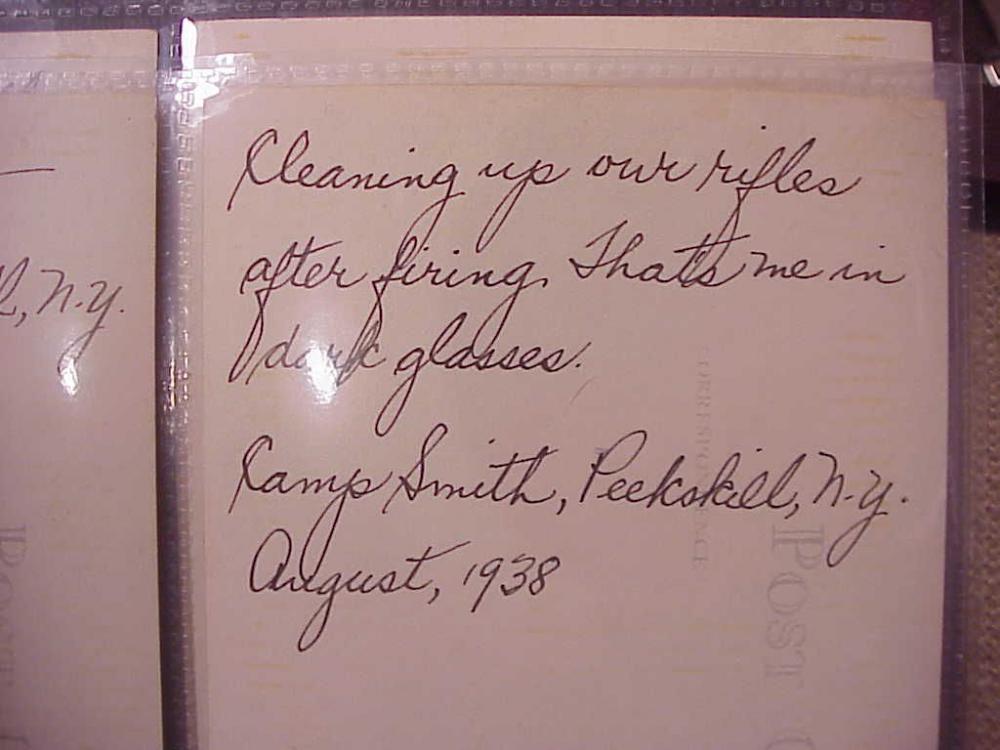 Cleaning up our rifles
after firing. That's me in
dark glasses.
Camp Smith, Peekskill, N.Y.
August, 1938
CORRESPONDENCE
POST
N.Y.
POST